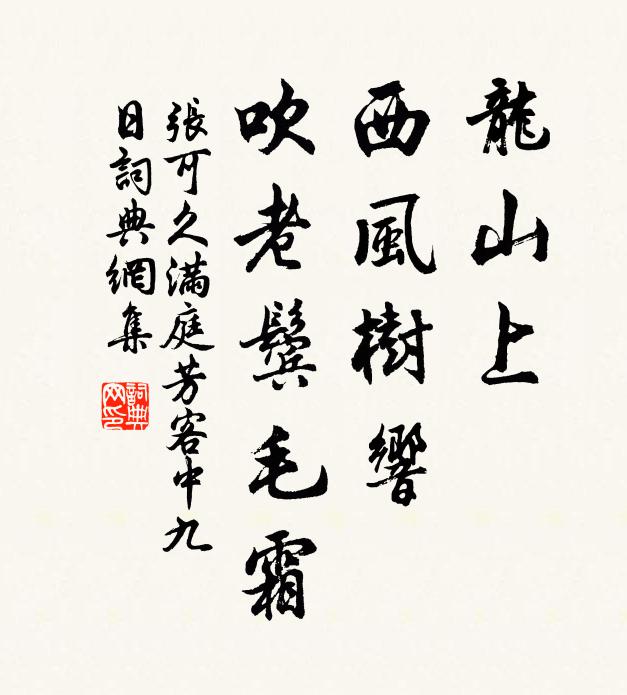 龍山上
西風樹響
吹老鬢毛霜
張可久滿庭芳客中九
日詞典網集
詞典
网印